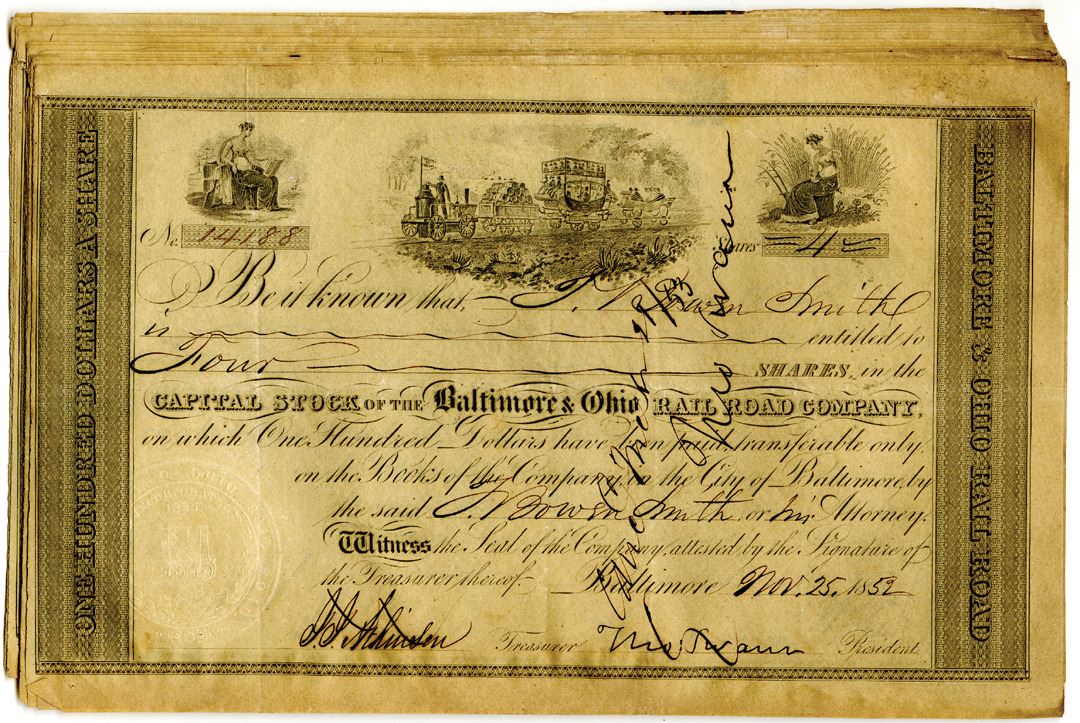 ONE HUNDRED DOLLARS A SHARE
BALTIMORE & OHIO RAIL ROAD
No. 14188
Shares 4
Be it known, that, Bowen Smith
is entitled to
Four SHARES, in the
CAPITAL STOCK OF THE Baltimore & Ohio RAIL ROAD COMPANY,
on which One Hundred Dollars have been paid, transferable only
on the Books of the Company, in the City of Baltimore, by
the said Bowen Smith or his Attorney.
Witness the Seal of the Company, attested by the Signature of
the Treasurer thereof. Baltimore Nov. 25, 1852
J. I. Atkinson Treasurer Tho. Swann President
Tho Swann